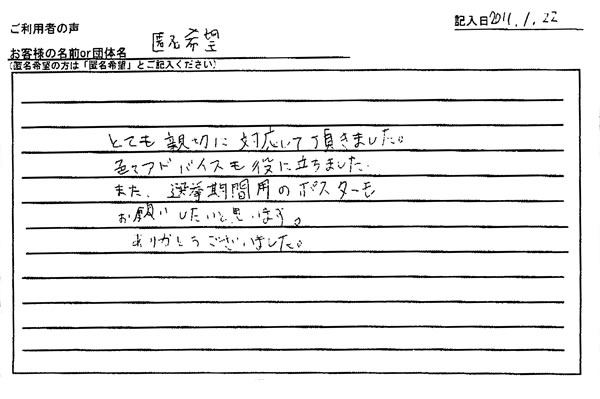 ご利用者の声
記入日2011.1.22
お客様の名前or団体名 匿名希望
(匿名希望の方は「匿名希望」とご記入ください)
とても親切に対応して頂きました。
色々アドバイスも役に立ちました。
また、選挙期間用のポスターも
お願いしたいと思います。
ありがとうございました。